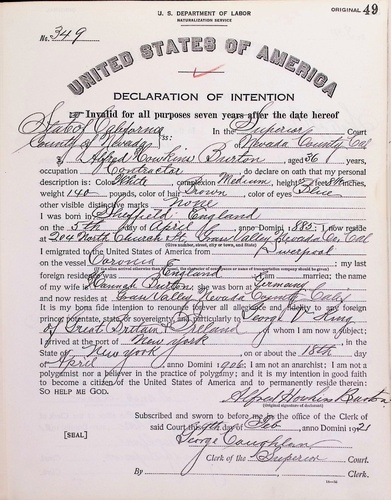 U. S. DEPARTMENT OF LABOR
NATURALIZATION SERVICE
ORIGINAL 49
No. 349
UNITED STATES OF AMERICA
DECLARATION OF INTENTION
Invalid for all purposes seven years after the date hereof
State of California
In the Superior Court
County of Nevada ss: of Nevada County, Cal
I, Alfred Howkins Burton, aged 36 years,
occupation Contractor, do declare on oath that my personal
description is: Color White, complexion Medium, height 5 feet 8 inches,
weight 140 pounds, color of hair Brown, color of eyes Blue
other visible distinctive marks none
I was born in Sheffield England
on the 5th day of April, anno Domini 1885; I now reside at
204 North Church St. Grass Valley Nevada Co. Cal
(Give number, street, city or town, and State)
I emigrated to the United States of America from Liverpool
on the vessel; my last
foreign residence was England; I am married; the name
of my wife is Hannah Burton; she was born at Germany
and now resides at Grass Valley Nevada County Cal
It is my bona fide intention to renounce forever all allegiance and fidelity to any foreign
prince, potentate, state, or sovereignty, and particularly to George V King
of Great Britain & Ireland, of whom I am now a subject;
I arrived at the port of New York, in the
State of New York, on or about the 18th day
of April, anno Domini 1906; I am not an anarchist; I am not a
polygamist nor a believer in the practice of polygamy; and it is my intention in good faith
to become a citizen of the United States of America and to permanently reside therein:
SO HELP ME GOD.
Alfred Howkins Burton
(Original signature of declarant)
Subscribed and sworn to before me in the office of the Clerk of
said Court this day of Feb, anno Domini 1921
[SEAL]
George Coughlan
Clerk of the Superior Court.
By, Clerk.